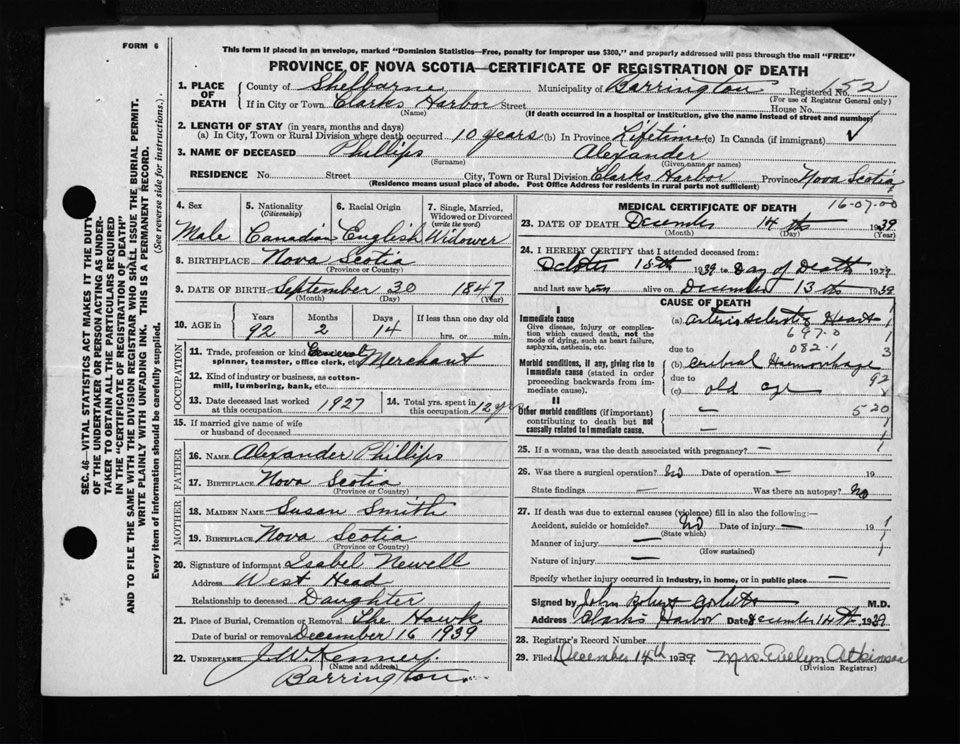 FORM 6
This form if placed in an envelope, marked "Dominion Statistics—Free, penalty for improper use $300," and properly addressed will pass through the mail "FREE"
PROVINCE OF NOVA SCOTIA—CERTIFICATE OF REGISTRATION OF DEATH
1. PLACE OF DEATH
County of Shelburne Municipality of Barrington Registered No. 152
(For use of Registrar General only)
If in City or Town Clarks Harbor Street House No.
(Name) (If death occurred in a hospital or institution, give the name instead of street and number)
2. LENGTH OF STAY (in years, months and days)
(a) In City, Town or Rural Division where death occurred 10 years (b) In Province Lifetime (c) In Canada (if immigrant)
3. NAME OF DECEASED Phillips Alexander
(Surname) (Given name or names)
RESIDENCE No. Street City, Town or Rural Division Clarks Harbor Province Nova Scotia
(Residence means usual place of abode. Post Office Address for residents in rural parts not sufficient)
4. Sex Male
5. Nationality (Citizenship) Canadian
6. Racial Origin English
7. Single, Married, Widowed or Divorced (write the word) Widower
8. BIRTHPLACE Nova Scotia
(Province or Country)
9. DATE OF BIRTH September 30 1847
(Month) (Day) (Year)
10. AGE in Years Months Days If less than one day old
92 2 14 hrs. or min.
OCCUPATION
11. Trade, profession or kind General Merchant
spinner, teamster, office clerk, etc.
12. Kind of industry or business, as cotton-mill, lumbering, bank, etc.
13. Date deceased last worked at this occupation 1927
14. Total yrs. spent in this occupation 12 yrs
15. If married give name of wife or husband of deceased
FATHER
16. NAME Alexander Phillips
17. BIRTHPLACE Nova Scotia
(Province or Country)
MOTHER
18. MAIDEN NAME Susan Smith
19. BIRTHPLACE Nova Scotia
(Province or Country)
20. Signature of informant Isabel Newell
Address West Head
Relationship to deceased Daughter
21. Place of Burial, Cremation or Removal The Hawk
Date of burial or removal December 16 1939
22. UNDERTAKER J. W. Kenney
(Name and address)
Barrington
MEDICAL CERTIFICATE OF DEATH
16-07-00
23. DATE OF DEATH December 14th 1939
(Month) (Day) (Year)
24. I HEREBY CERTIFY that I attended deceased from:
15th 1939 to Day of Death 1939
and last saw him alive on December 13th 1939
CAUSE OF DEATH
I
Immediate cause
Give disease, injury or complication which caused death, not the mode of dying, such as heart failure, asphyxia, asthenia, etc.
(a) Heart
697.0
due to 082.1
Morbid conditions, if any, giving rise to immediate cause (stated in order proceeding backwards from immediate cause).
(b) Hemorrhage
due to 92
(c) old age
II
Other morbid conditions (if important) contributing to death but not causally related to immediate cause.
— 520
—
25. If a woman, was the death associated with pregnancy? —
26. Was there a surgical operation? No Date of operation — 19
State findings — Was there an autopsy? No
27. If death was due to external causes (violence) fill in also the following:—
Accident, suicide or homicide? No Date of injury — 19
(State which)
Manner of injury —
(How sustained)
Nature of injury —
Specify whether injury occurred in industry, in home, or in public place —
Signed by John Robert M.D.
Address Clarks Harbor Date December 14th 1939
28. Registrar's Record Number
29. Filed December 14th 1939 Mrs. Evelyn Atkinson
(Division Registrar)
SEC. 46—VITAL STATISTICS ACT MAKES IT THE DUTY
OF THE UNDERTAKER OR PERSON ACTING AS UNDER-
TAKER TO OBTAIN ALL THE PARTICULARS REQUIRED
IN THE "CERTIFICATE OF REGISTRATION OF DEATH"
AND TO FILE THE SAME WITH THE DIVISION REGISTRAR WHO SHALL ISSUE THE BURIAL PERMIT.
WRITE PLAINLY WITH UNFADING INK. THIS IS A PERMANENT RECORD.
Every item of information should be carefully supplied. (See reverse side for instructions.)